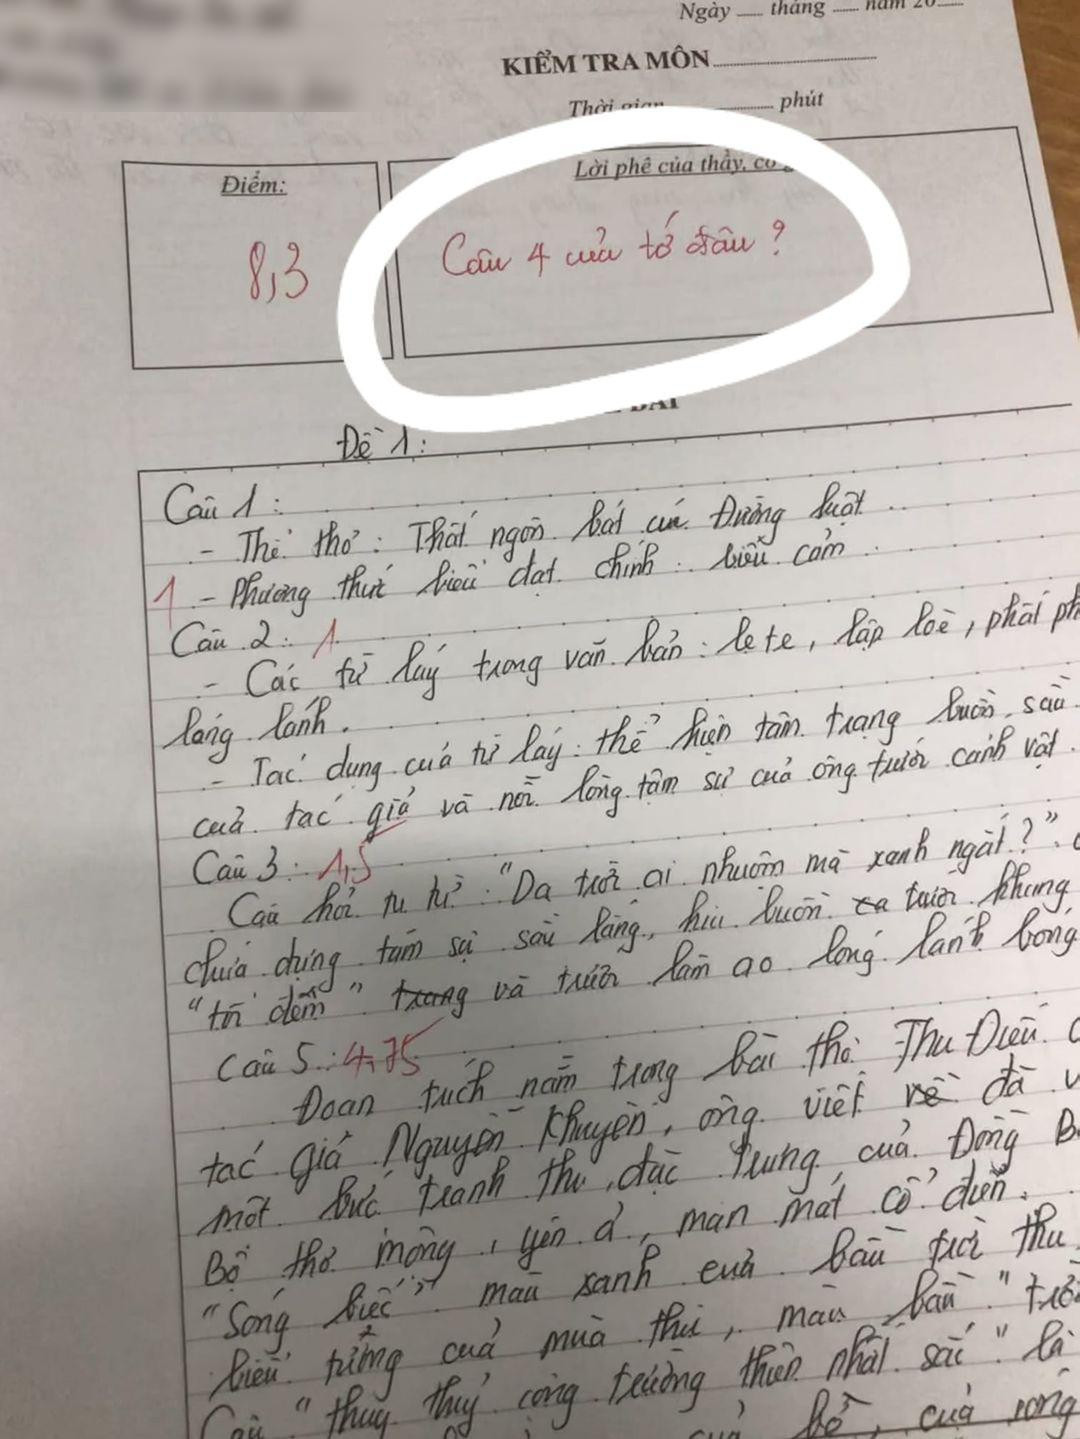 Ngày ..... tháng ..... năm 20.....
KIỂM TRA MÔN
Thời gian ..... phút
Điểm:
Lời phê của thầy, cô
8,3
Câu 4 của tớ đâu ?
BÀI
Đề 1:
Câu 1 :
- Thể thơ : Thất ngôn bát cú Đường luật
1 - Phương thức biểu đạt chính : biểu cảm
Câu 2 : 1
- Các từ láy trong văn bản : le te, lập loè, phất ph
lóng lánh.
- Tác dụng của từ láy : thể hiện tâm trạng buồn sầu
của tác giả và nỗi lòng tâm sự của ông trước cảnh vật
Câu 3 : 1,5
Câu hỏi tu từ : "Da trời ai nhuộm mà xanh ngắt ?".
chứa đựng tâm sự sâu lắng, hiu buồn trước khung
"tối đêm" và trước làn ao lóng lánh bóng
Câu 5 : 4,75
Đoạn trích nằm trong bài thơ Thu Điếu
tác giả Nguyễn Khuyến, ông viết về đã
một bức tranh thu đặc trưng của Đồng B
Bộ thơ mộng, yên ả, man mát cổ điển.
"Sóng biếc" màu xanh của bầu trời thu
biểu tượng của mùa thu, màu bần "trời
Câu "thuy thuỷ cộng trường thiên nhất sắc" là
của sóng